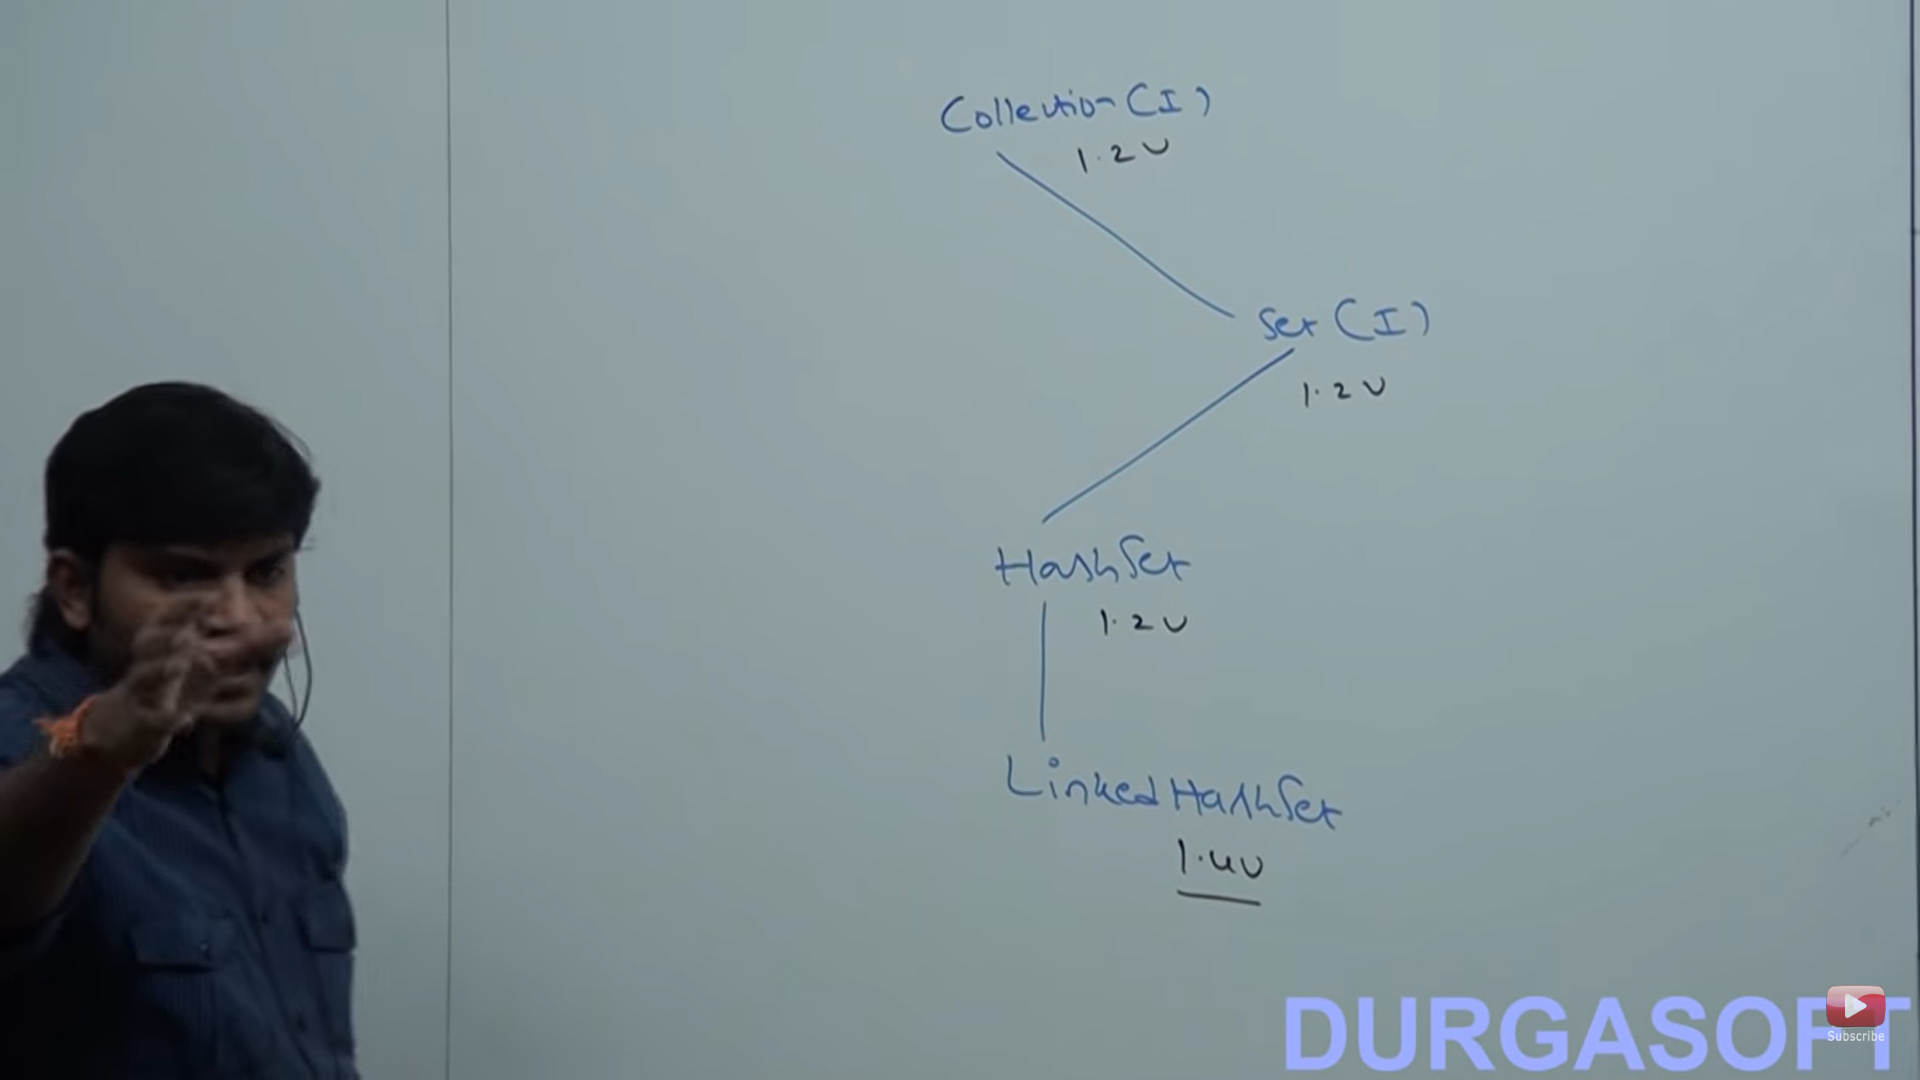 Collection (I)
1.2 v
Set (I)
1.2 v
HashSet
1.2 v
LinkedHashSet
1.4 v
DURGASOFT
Subscribe